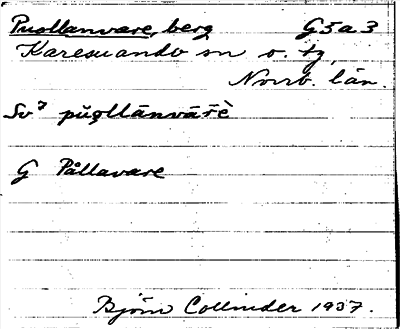 Puollanvare, berg G5a3
Karesuando sn o. tg
Norrb. län.
Sv³ pŭo̯llānvār̄è
G Pållavare
Björn Collinder 1937.